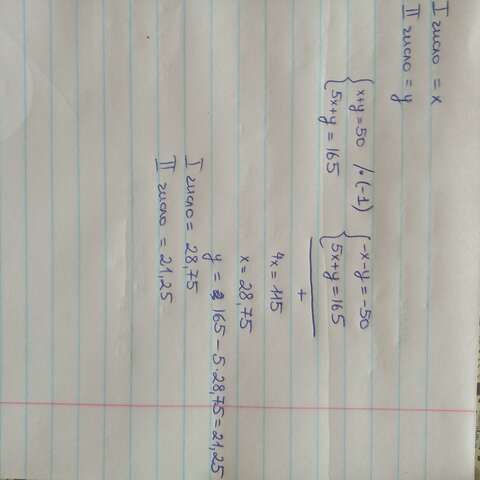 I число = x
II число = y
{x+y=50 /·(-1) {-x-y=-50
{5x+y=165 {5x+y=165
+
4x=115
x=28,75
y = 165 - 5·28,75=21,25
I число = 28,75
II число = 21,25